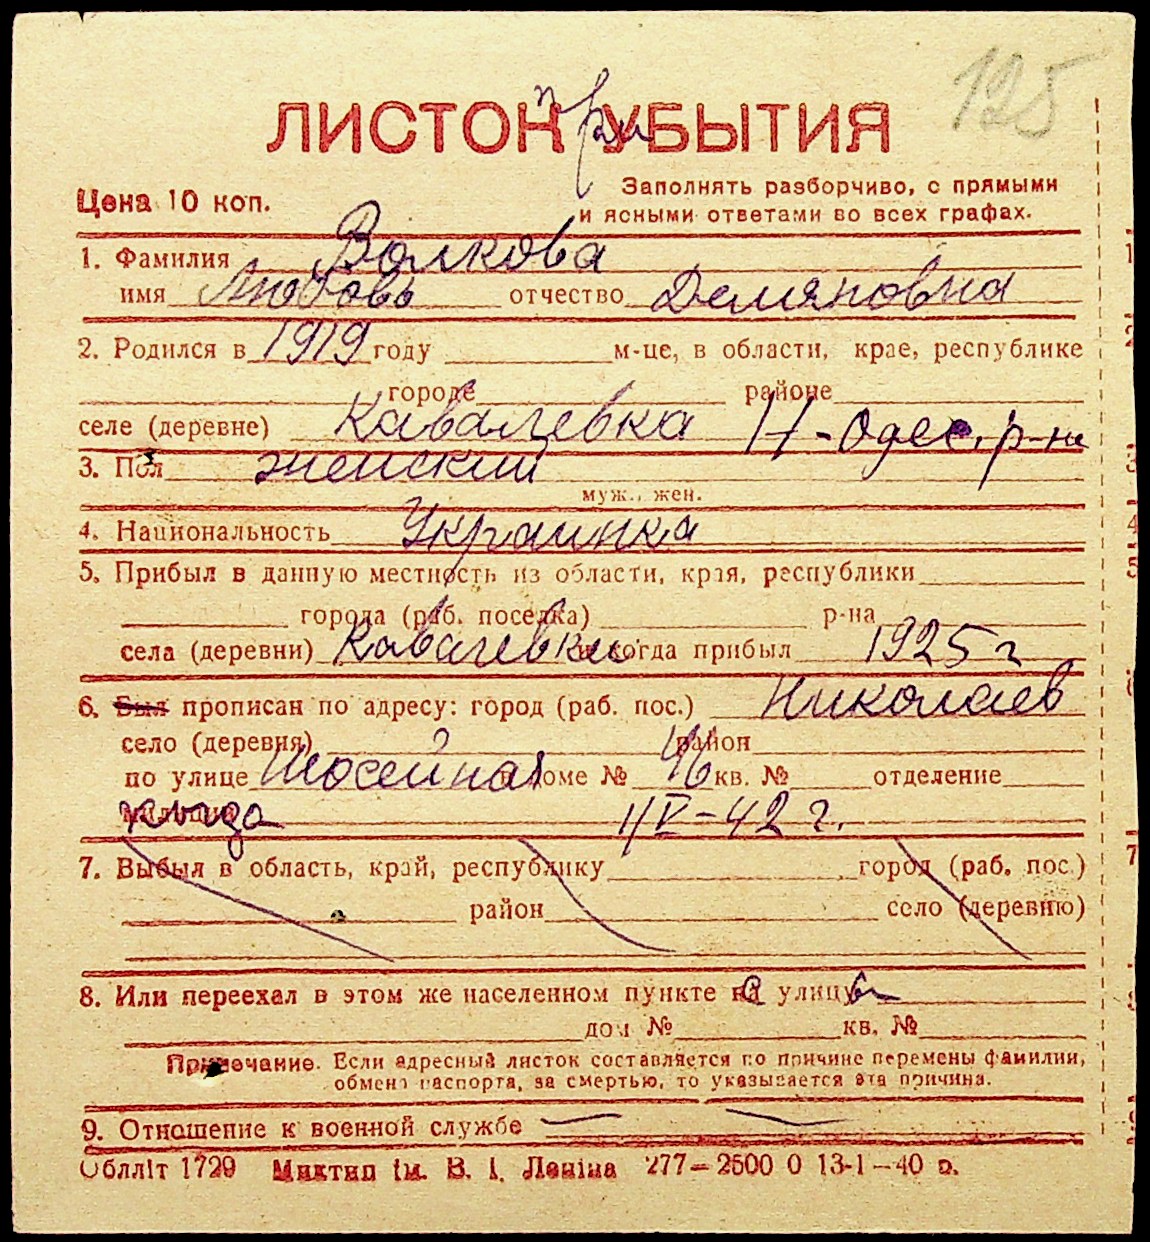 125
ЛИСТОК при УБЫТИЯ
Цена 10 коп.
Заполнять разборчиво, с прямыми
и ясными ответами во всех графах.
1. Фамилия Волкова
имя Любовь отчество Демяновна
2. Родился в 1919 году м-це, в области, крае, республике
городе районе
селе (деревне) Кавалевка Н-Одес. р-на
3. Пол женский
муж., жен.
4. Национальность Украинка
5. Прибыл в данную местность из области, края, республики
города (раб. поселка) р-на
села (деревни) Кавалевки и когда прибыл 1925 г
6. Был прописан по адресу: город (раб. пос.) Николаев
село (деревня) район
по улице Шосейная в доме № 46 кв. № отделение
милиции 1/V-42 г.
7. Выбыл в область, край, республику город (раб. пос.)
район село (деревню)
8. Или переехал в этом же населенном пункте на улицу
дом № кв. №
Примечание. Если адресный листок составляется по причине перемены фамилии,
обмена паспорта, за смертью, то указывается эта причина.
9. Отношение к военной службе
Облліт 1729 Миктип ім. В. І. Леніна 277—2500 0 13-1—40 р.